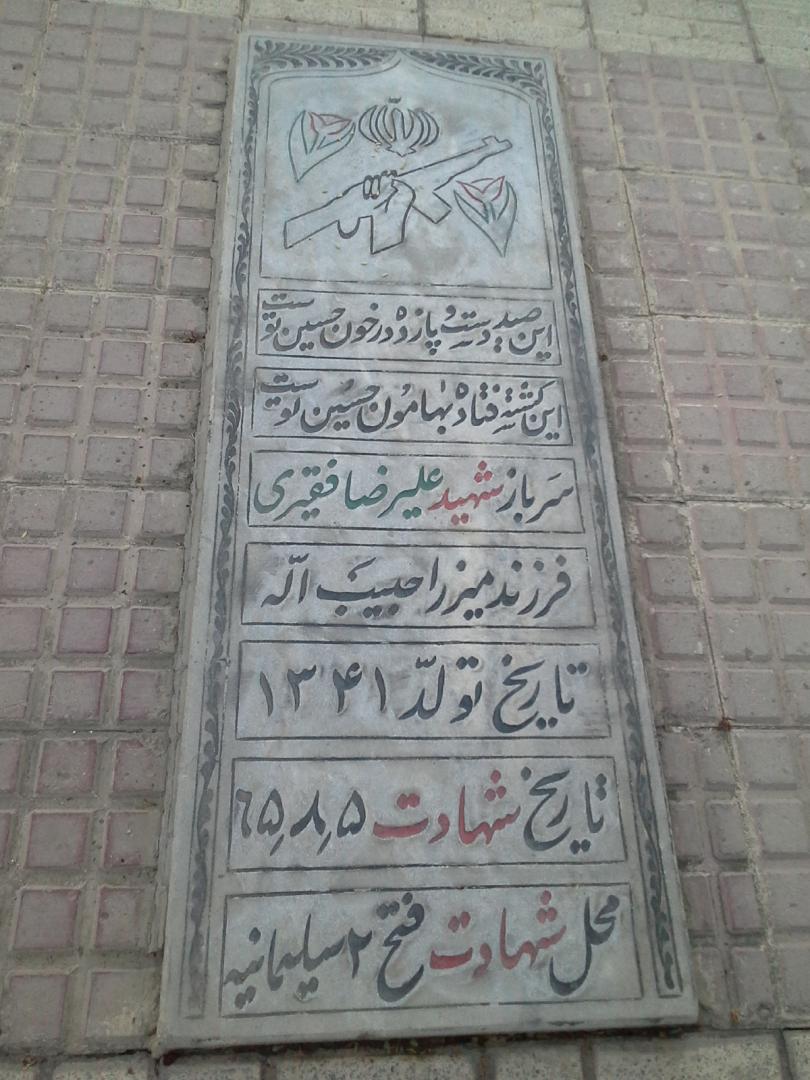 این صید دست و پا زده در خون حسین توست
این کشته فتاده بهامون حسین توست
سرباز شهید علیرضا فقیری
فرزند میرزا حبیب اله
تاریخ تولّد ۱۳۴۱
تاریخ شهادت ۶۵٫۸٫۵
محل شهادت فتح ۲ سلیمانیه